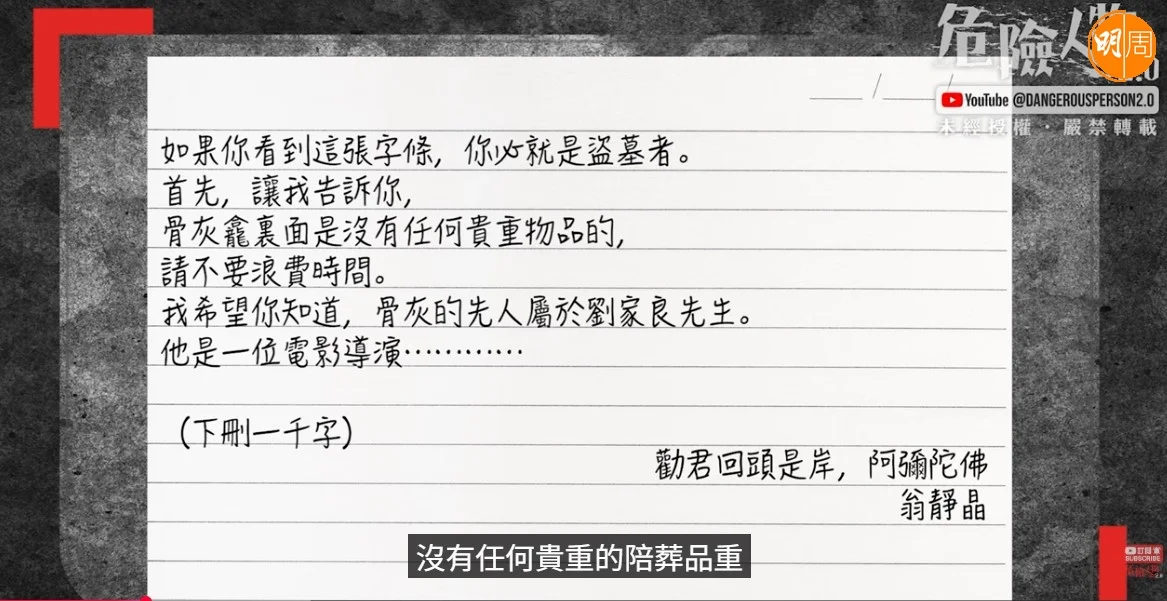 危險人物2.0
明周
YouTube @DANGEROUSPERSON2.0
未經授權・嚴禁轉載
如果你看到這張字條，你必就是盜墓者。
首先，讓我告訴你，
骨灰龕裏面是沒有任何貴重物品的，
請不要浪費時間。
我希望你知道，骨灰的先人屬於劉家良先生。
他是一位電影導演…………
（下刪一千字）
勸君回頭是岸，阿彌陀佛
翁靜晶
沒有任何貴重的陪葬品重
訂閱
SUBSCRIBE